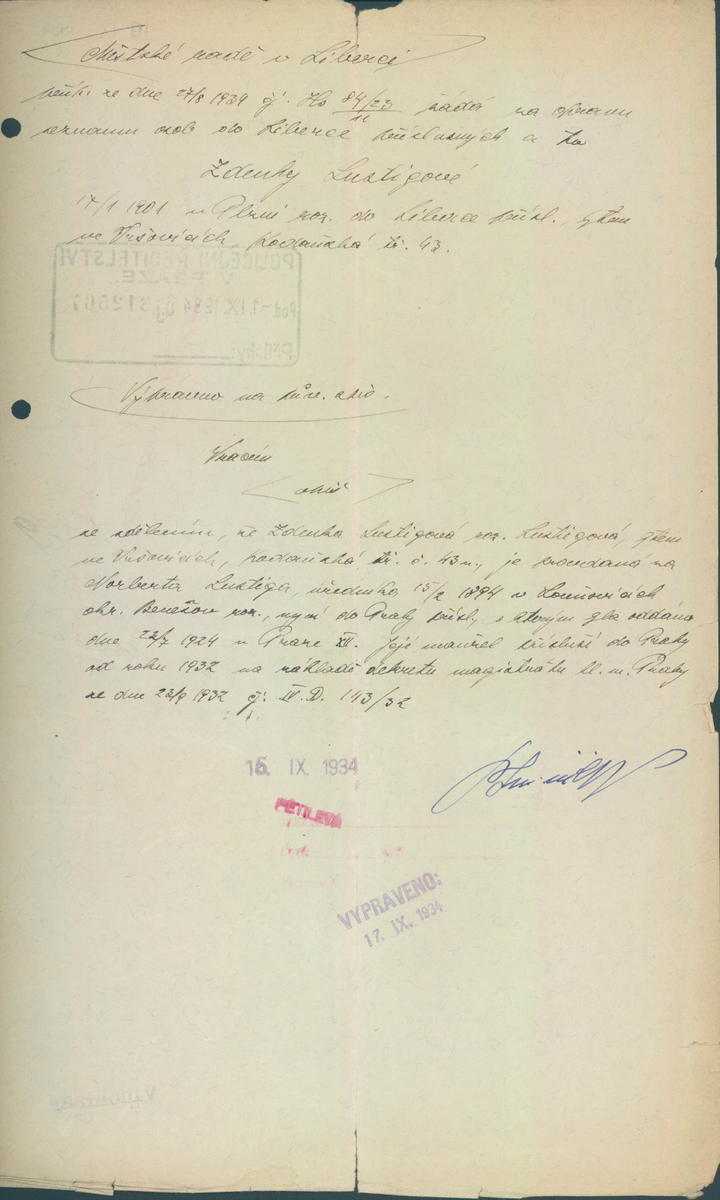 Městské radě v Liberci
ze dne 27/8 1934 čj. Ho 84/23 žádá na opravu
11
seznamu osob do Liberce příslušných a za
Zdeňky Lustigové
17/1 1901 v Plzni nar. do Liberce přísl., bytem
ve Vršovicích, Kodaňská tř. 43.
POLICEJNÍ ŘEDITELSTVÍ
V PRAZE.
Pod -1.IX.1934 čj 812567
Přílohy:
Vypraveno na
Vracím
se sdělením, že Zdeňka Lustigová roz. Lustigová, bytem
ve Vršovicích, Kodaňská tř. č. 43 n., je provdaná za
Norberta Lustiga, úředníka 15/2 1894 v Louňovicích
okr. Benešov nar., nyní do Prahy přísl., s kterým byla oddána
dne 22/7 1924 v Praze XII. Její manžel přísluší do Prahy
od roku 1932 na základě dekretu magistrátu hl. m. Prahy
ze dne 23/9 1932 čj. IV. D. 143/32
15. IX. 1934
PETILEVÁ
VYPRAVENO:
17. IX. 1934